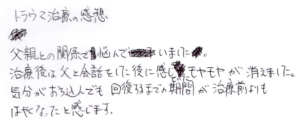 トラウマ治療の感想
父親との関係で悩んでいました。
治療後は父と会話をした後に感じるモヤモヤが消えました。
気分がおち込んでも回復するまでの期間が治療前よりも
はやくなったと感じます。